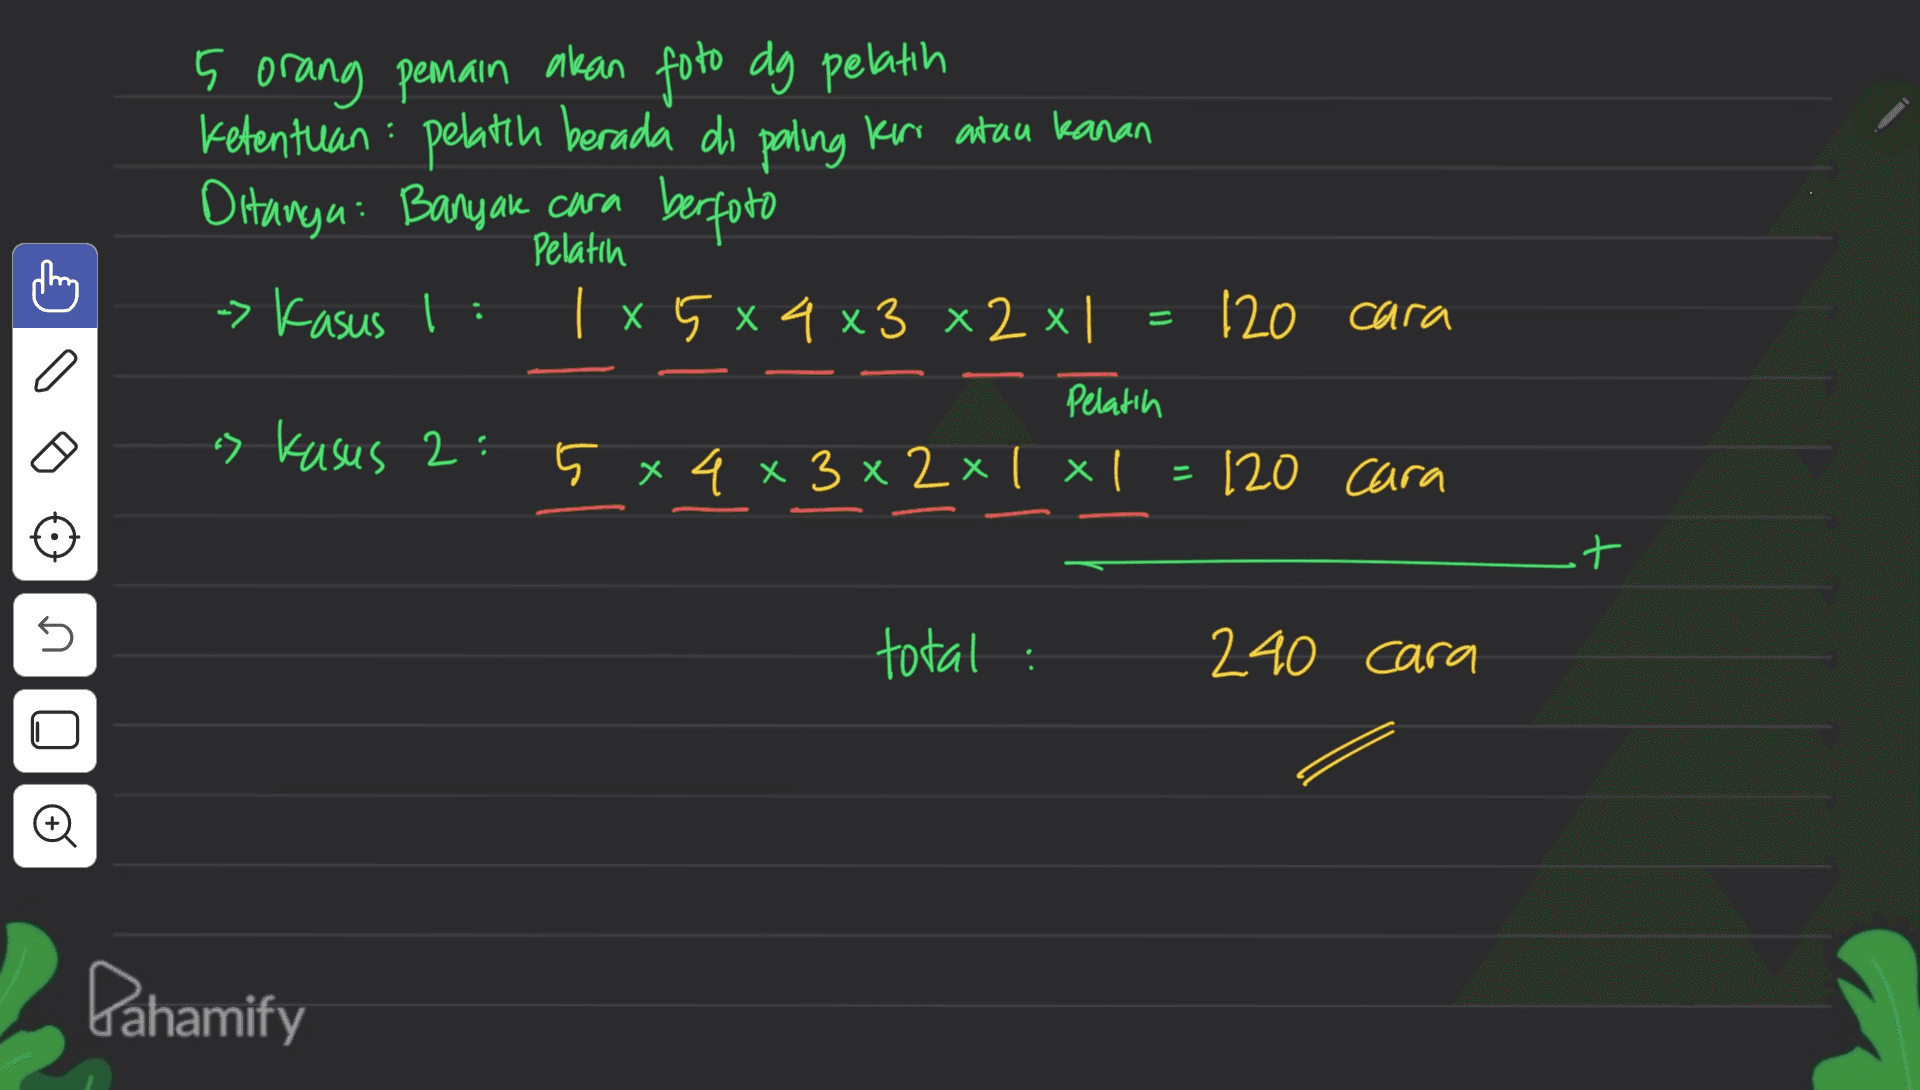 5 orang pemain akan foto dg pelatih
Ketentuan : pelatih berada di paling kiri atau kanan
Ditanya : Banyak cara berfoto
Pelatih
-> Kasus 1 : 1 x 5 x 4 x 3 x 2 x 1 = 120 cara
Pelatih
-> Kasus 2 : 5 x 4 x 3 x 2 x 1 x 1 = 120 cara
+
total : 240 cara
Pahamify